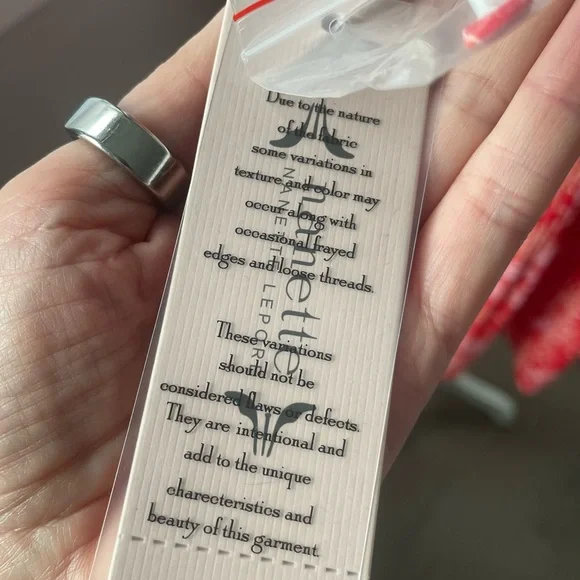 Due to the nature
of the fabric
some variations in
texture and color may
occur along with
occasional frayed
edges and loose threads.
These variations
should not be
considered flaws or defects.
They are intentional and
add to the unique
charecteristics and
beauty of this garment.
nanette
NANETTE LEPORE